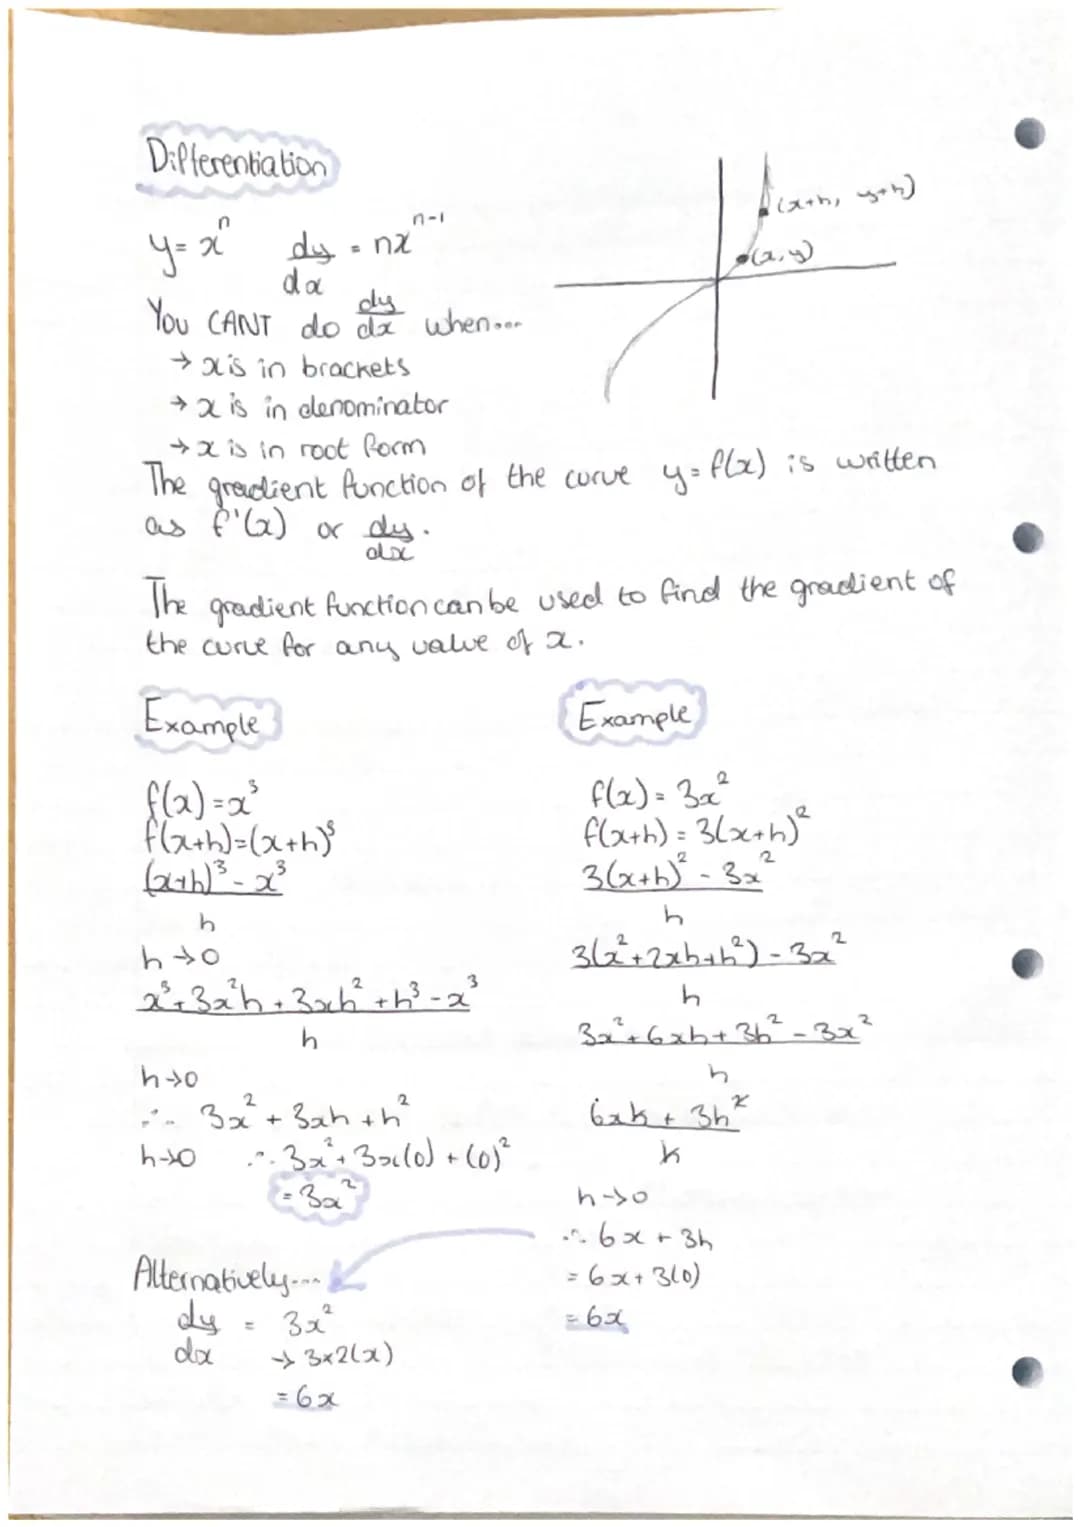 Differentiation
y = xⁿ   dy/dx = nxⁿ⁻¹
(x+h, y+h)
(x, y)
You CANT do dy/dx when...
→ x is in brackets
→ x is in denominator
→ x is in root form
The gradient function of the curve y = f(x) is written
as f'(x) or dy/dx.
The gradient function can be used to find the gradient of
the curve for any value of x.
Example
f(x) = x³
f(x+h) = (x+h)³
(x+h)³ - x³
h
h → 0
x³ + 3x²h + 3xh² + h³ - x³
h
h → 0
∴ 3x² + 3xh + h²
h → 0   ∴ 3x² + 3x(0) + (0)²
= 3x²
Example
f(x) = 3x²
f(x+h) = 3(x+h)²
3(x+h)² - 3x²
h
3(x² + 2xh + h²) - 3x²
h
3x² + 6xh + 3h² - 3x²
h
6xh + 3h²
h
h → 0
∴ 6x + 3h
= 6x + 3(0)
= 6x
Alternatively...
dy/dx = 3x²
→ 3×2(x)
= 6x